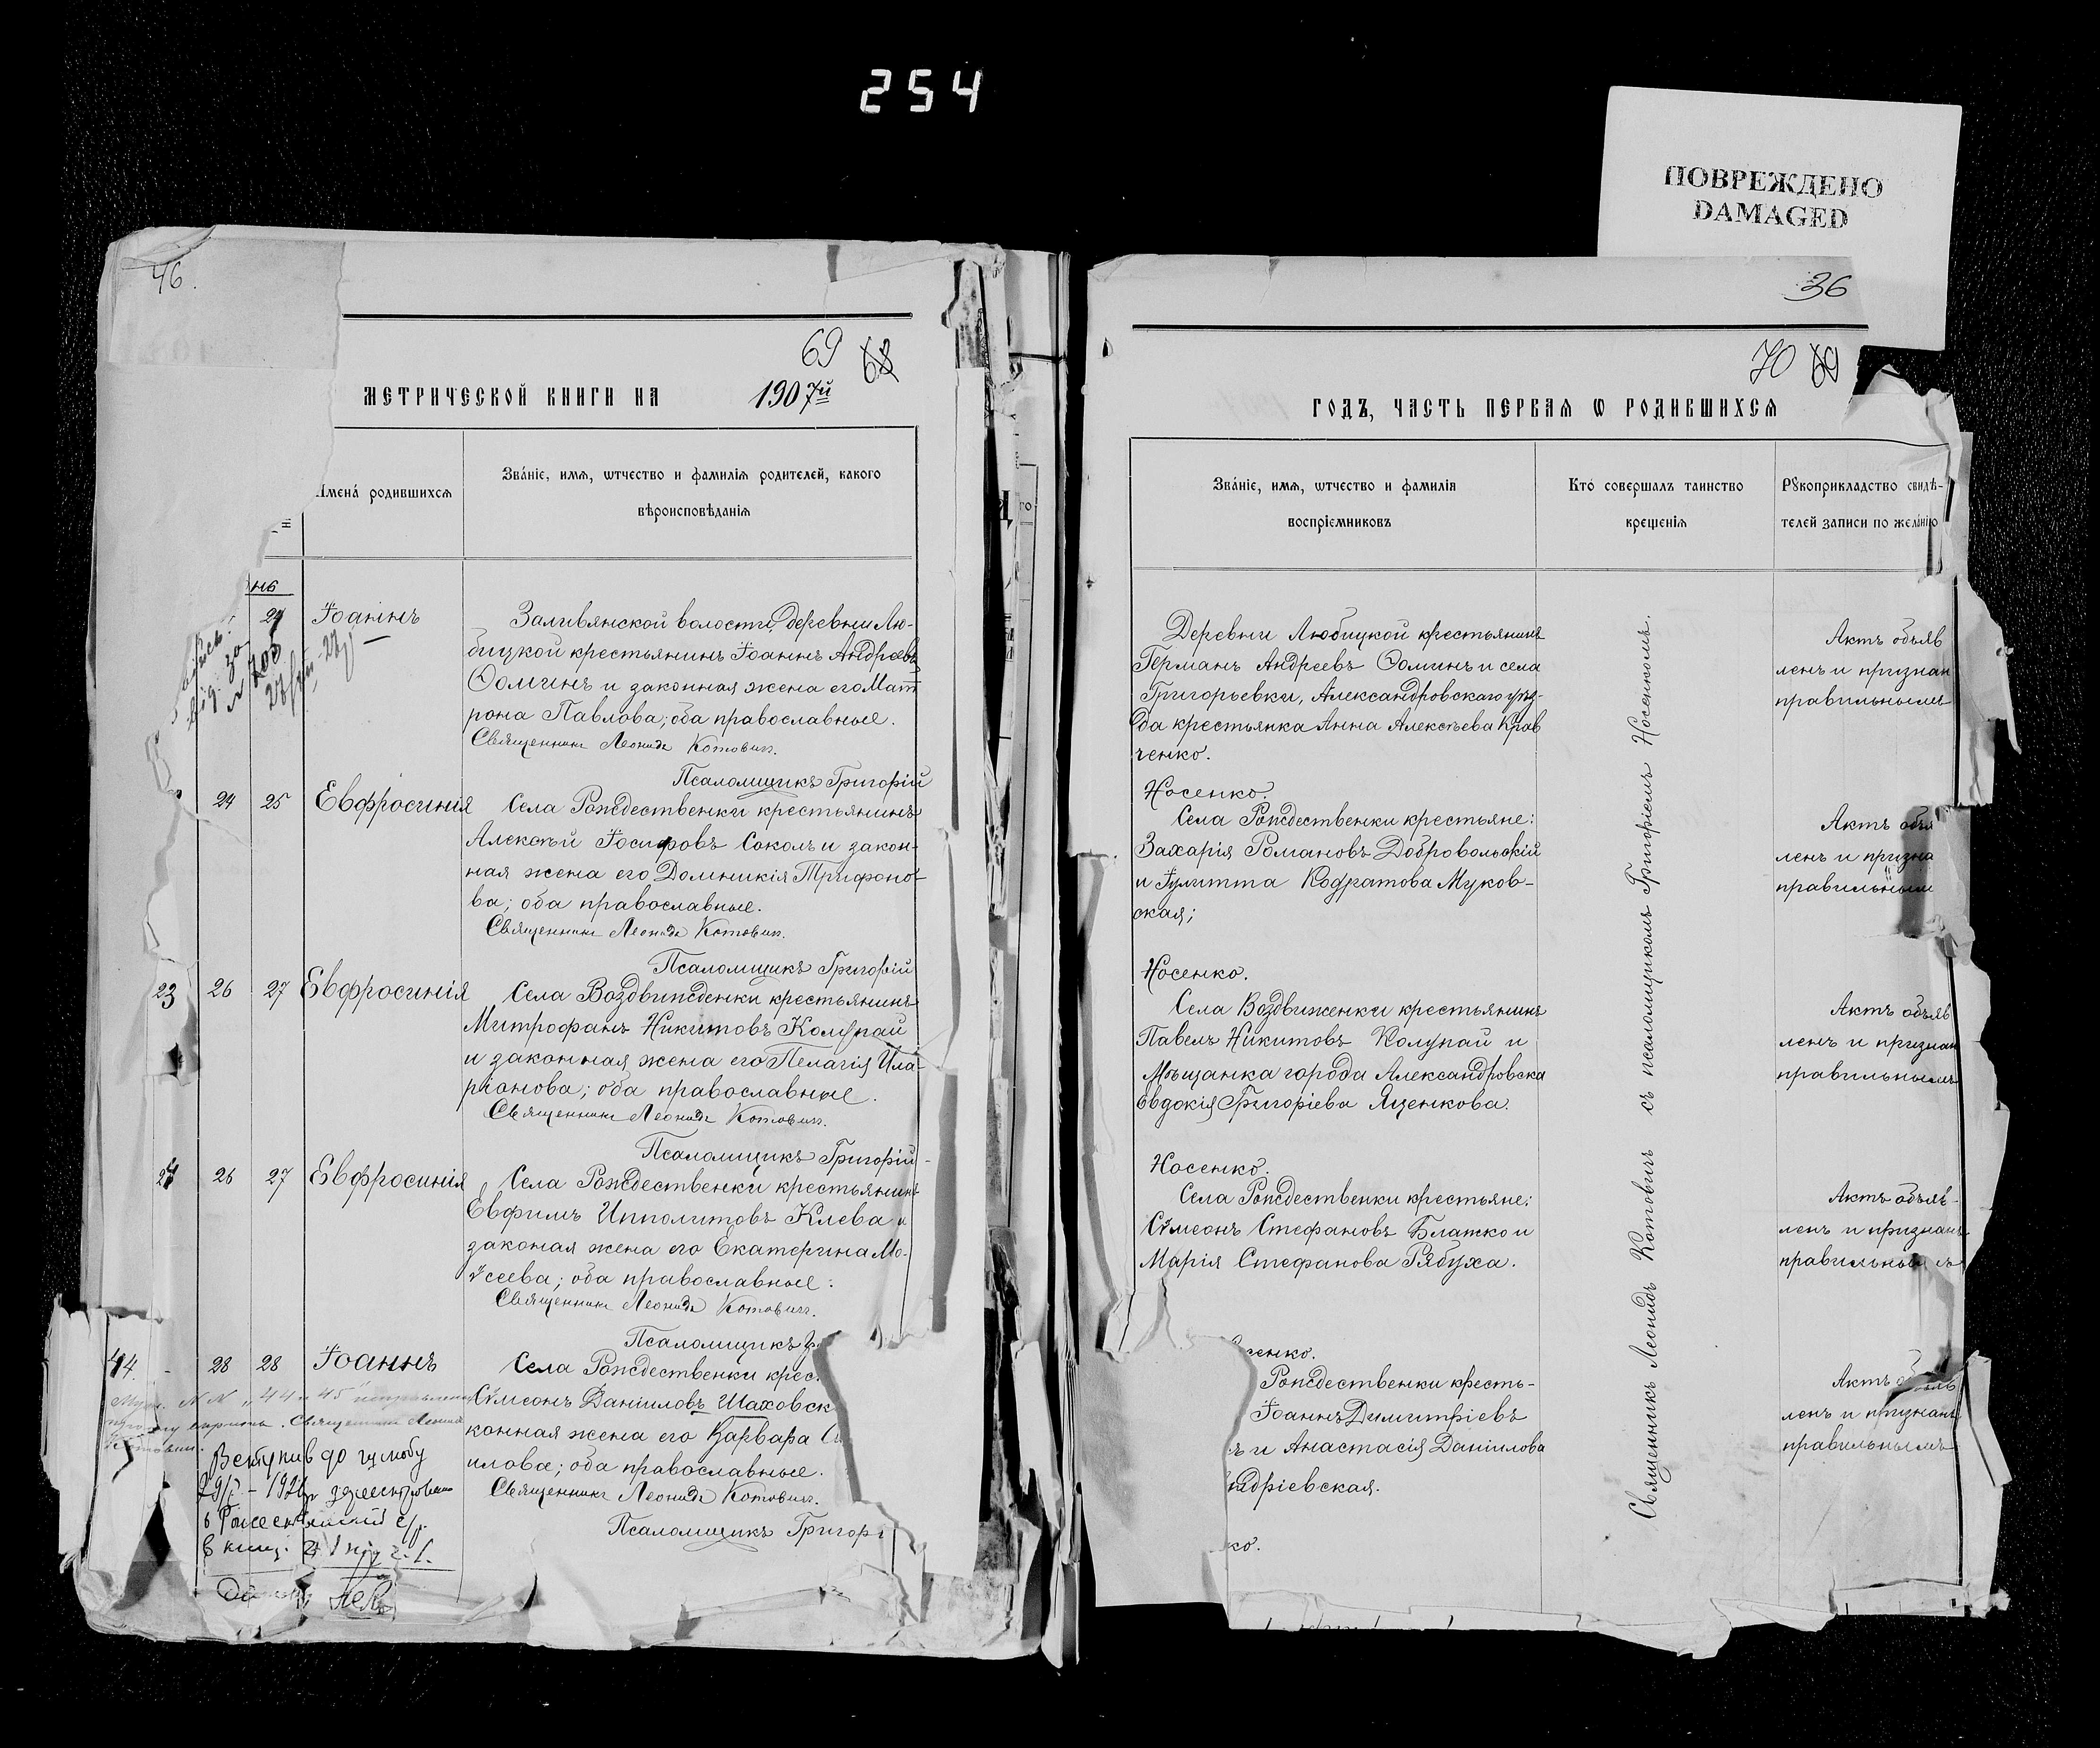 254
ПОВРЕЖДЕНО
DAMAGED
46.
69 68
МЕТРИЧЕСКОЙ КНИГИ НА 1907й
Имена́ родившихсѧ
Зва́нїе, имѧ, ѿтчество и фамилїѧ родителей, какого
вѣроисповѣданїѧ
24 Іоаннъ
Заливянской волости, деревни Лю-
бицкой крестьянинъ Іоаннъ Андреевъ
Ѳоминъ и законная жена его Мат
рона Павлова; оба православные.
Священникъ Леонидъ Котовичъ.
Псаломщикъ Григорій
24 25 Евфросинія
Села Рождественки крестьянинъ
Алексѣй Іосифовъ Соколъ и закон-
ная жена его Домникія Трифоно-
ва; оба православные.
Священникъ Леонидъ Котовичъ.
Псаломщикъ Григорій
23 26 27 Евфросинія
Села Воздвиженки крестьянинъ
Митрофанъ Никитовъ Колупай
и законная жена его Пелагія Ила-
ріонова; оба православные.
Священникъ Леонидъ Котовичъ.
Псаломщикъ Григорій
24 26 27 Евфросинія
Села Рождественки крестьянинъ
Евфимъ Ипполитовъ Клева и
законая жена его Екатерина Мо-
ѵсеева; оба православные.
Священникъ Леонидъ Котовичъ.
Псаломщикъ
44. 28 28 Іоаннъ
Села Рождественки крес
Сѵмеонъ Даніиловъ Шаховск
конная жена его Варвара
илова; оба православные.
Священникъ Леонидъ Котовичъ.
Псаломщикъ Григорі
Вступив до шлюбу
в книз.
36
70 69
ГОДЪ, ЧАСТЬ ПЕРВАѦ Ѡ РОДИВШИХСѦ
Зва́нїе, имѧ, ѿтчество и фамилїѧ
воспрїемниковъ
Кто́ совершалъ таинство
крещенїѧ
Рꙋкоприкладство свидѣ-
телей записи по жела́нїю
Деревни Любицкой крестьянинъ
Германъ Андреевъ Ѳоминъ и села
Григорьевки, Александровскаго уѣз-
да крестьянка Анна Алексѣева Крав
ченко.
Актъ объяв
ленъ и признан
правильнымъ
Носенко.
Села Рождественки крестьяне:
Захарія Романовъ Добровольскій
и Іулитта Кодратова Муков-
ская;
Актъ объя
ленъ и призна
правильным
Носенко.
Села Воздвиженки крестьянинъ
Павелъ Никитовъ Колупай и
Мѣщанка города Александровска
Евдокія Григоріева Яценкова.
Актъ объяв
ленъ и признан
правильнымъ
Носенко.
Села Рождественки крестьяне:
Сѵмеонъ Стефановъ Блажко и
Марія Стефанова Рябуха.
Актъ объяв-
ленъ и признанъ
правильны
сенко.
Рождественки кресть-
Іоаннъ Димитріевъ
ъ и Анастасія Даніилова
ндріевская.
Актъ
ленъ и признанъ
правильнымъ
ко.
Священникъ Леонидъ Котовичъ съ псаломщикомъ Григоріемъ Носенкомъ.